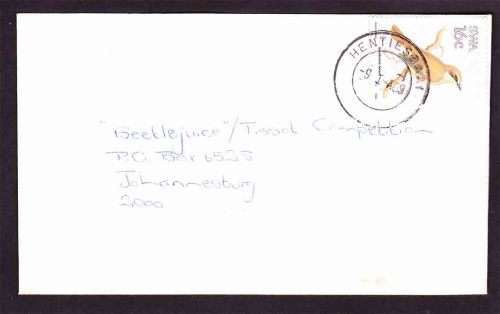 SWA
16c
HENTIESBAAI
"Beetlejuice"/Tissot Competition
P.O. Box 6525
Johannesburg
2000